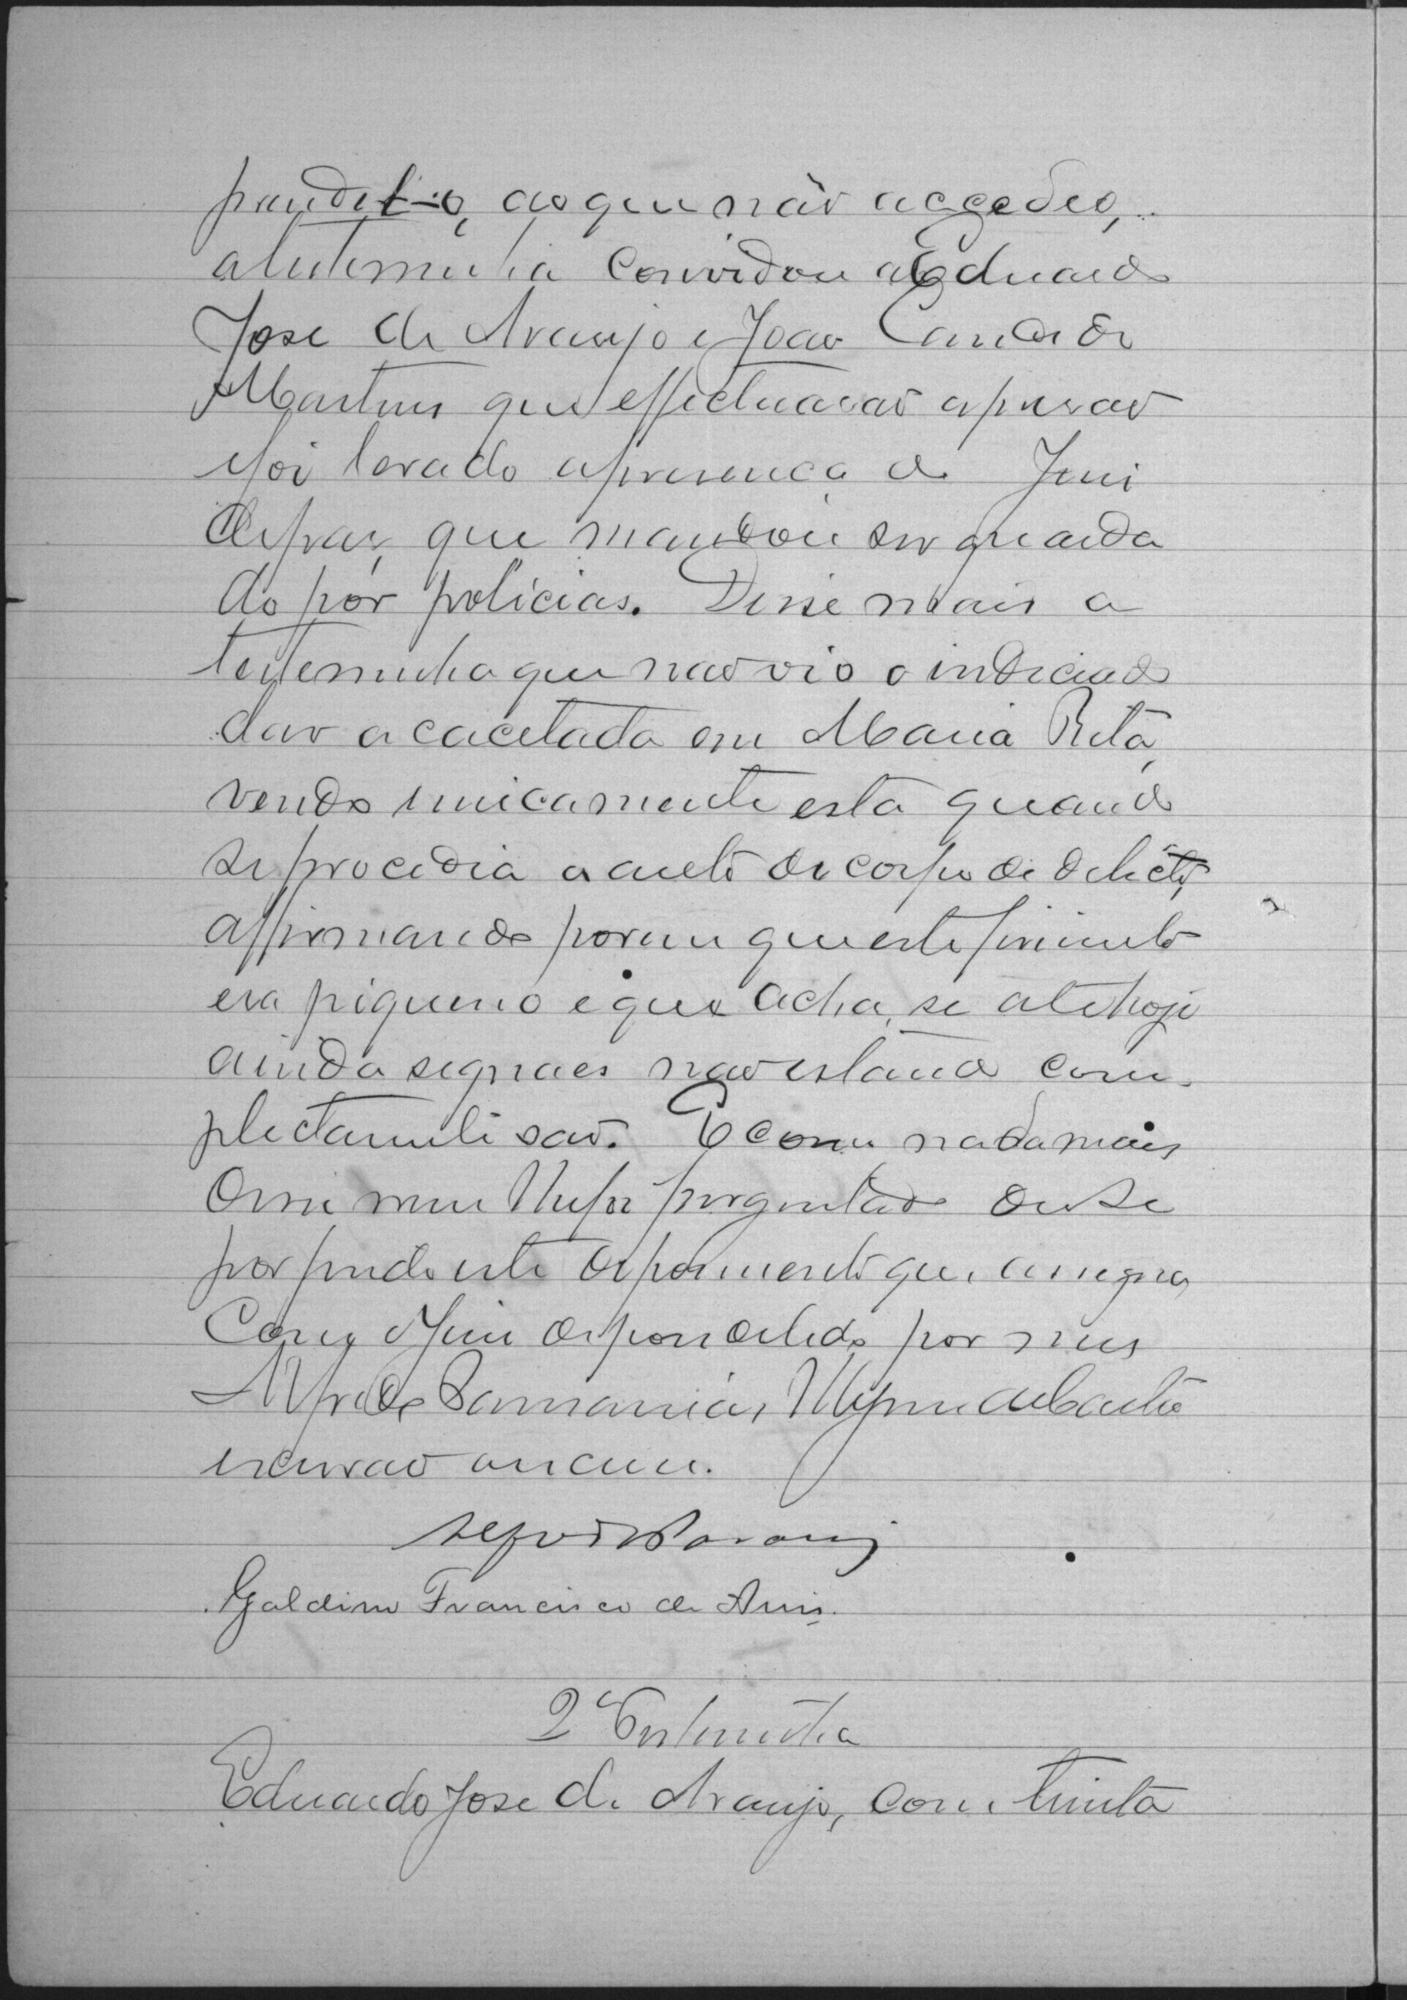 prendel-o, ao que não accedeo,
a testemunha convidou a Eduardo
Jose de Araujo e Joao Candido
Martins que effectuarão a prisão
e foi levado a presença do Juiz
de paz, que mandou ser guarda
do por policias. Disse mais a
testemunha que não vio o indiciado
dar a cacetada em Maria Rita,
vendo unicamente esta quando
se procedia o aucto de corpo de delicto,
affirmando porem que este ferimento
era piqueno e que acha, se até hoje
ainda signaes não estando com
pletamente são. E como nada mais
disse nem lhe foi perguntado deu se
por findo este depoimento que assigna
com o Juiz depois de lido por mim
Alfredo
escrivão
Galdino Francisco de Assis.
2ª Testemunha
Eduardo Jose de Araujo, com trinta